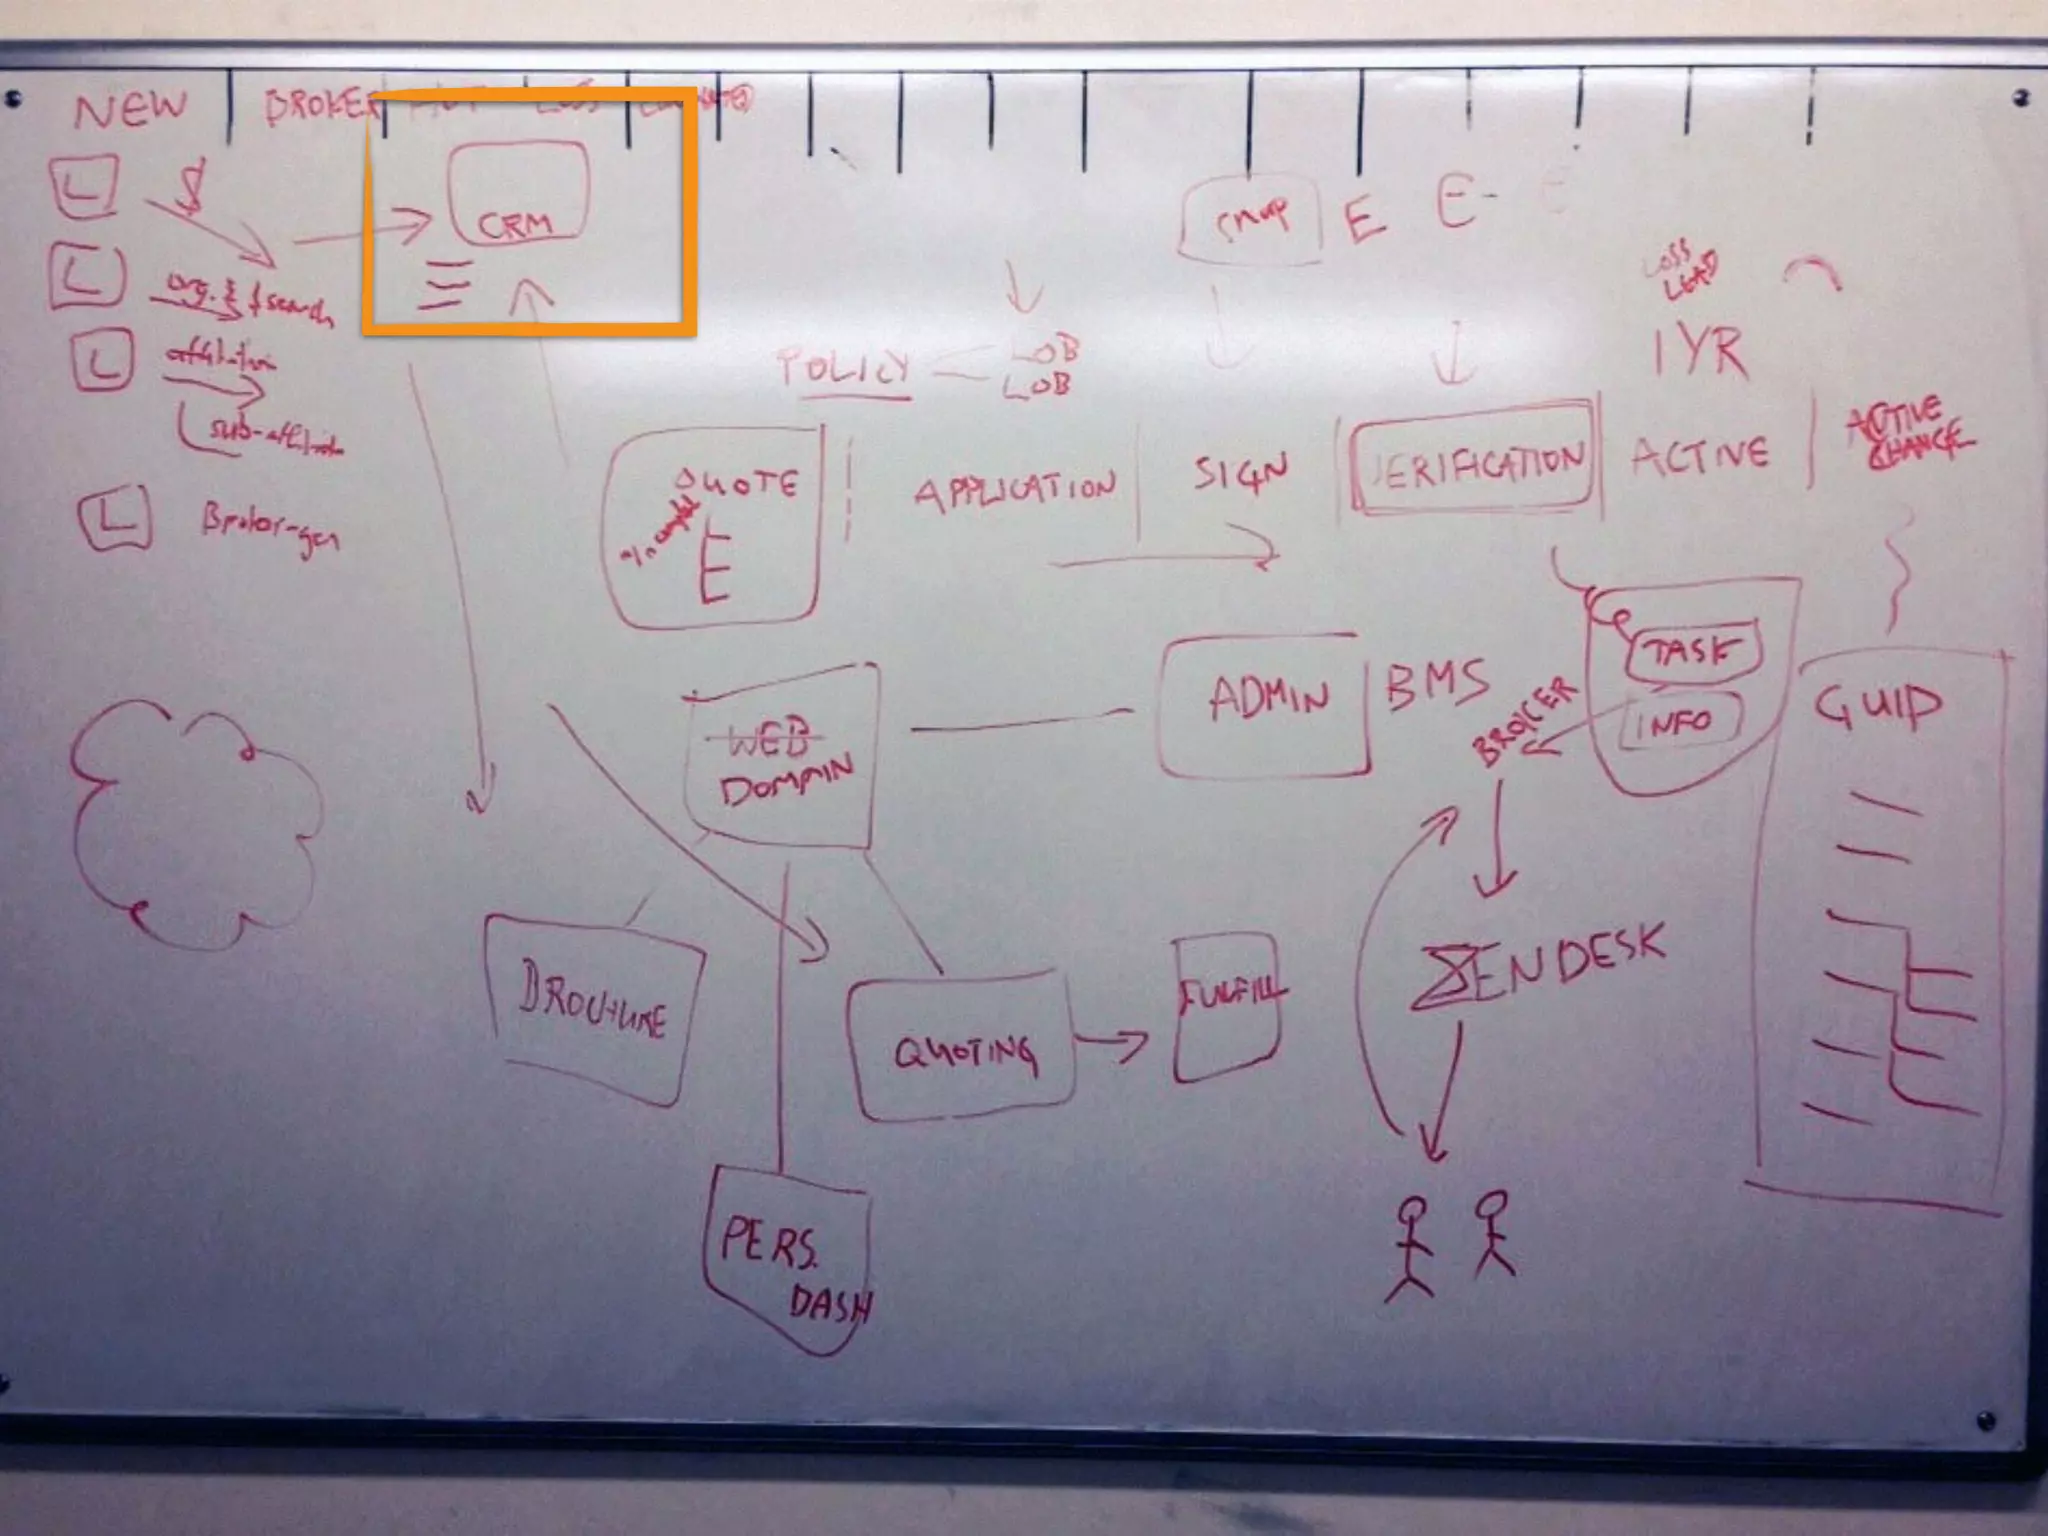 NEW
BROKER
L
$
CRM
L
org. & $ search
L
affiliation
sub-affiliate
L
Broker-gen
POLICY
LOB
LOB
E
E-
E
LOSS
LEAD
1 YR
QUOTE
% complete
APPLICATION
SIGN
VERIFICATION
ACTIVE
ACTIVE
CHANGE
WEB
DOMAIN
ADMIN
BMS
BROKER
TASK
INFO
GUID
BROCHURE
QUOTING
FULFILL
ZENDESK
PERS.
DASH